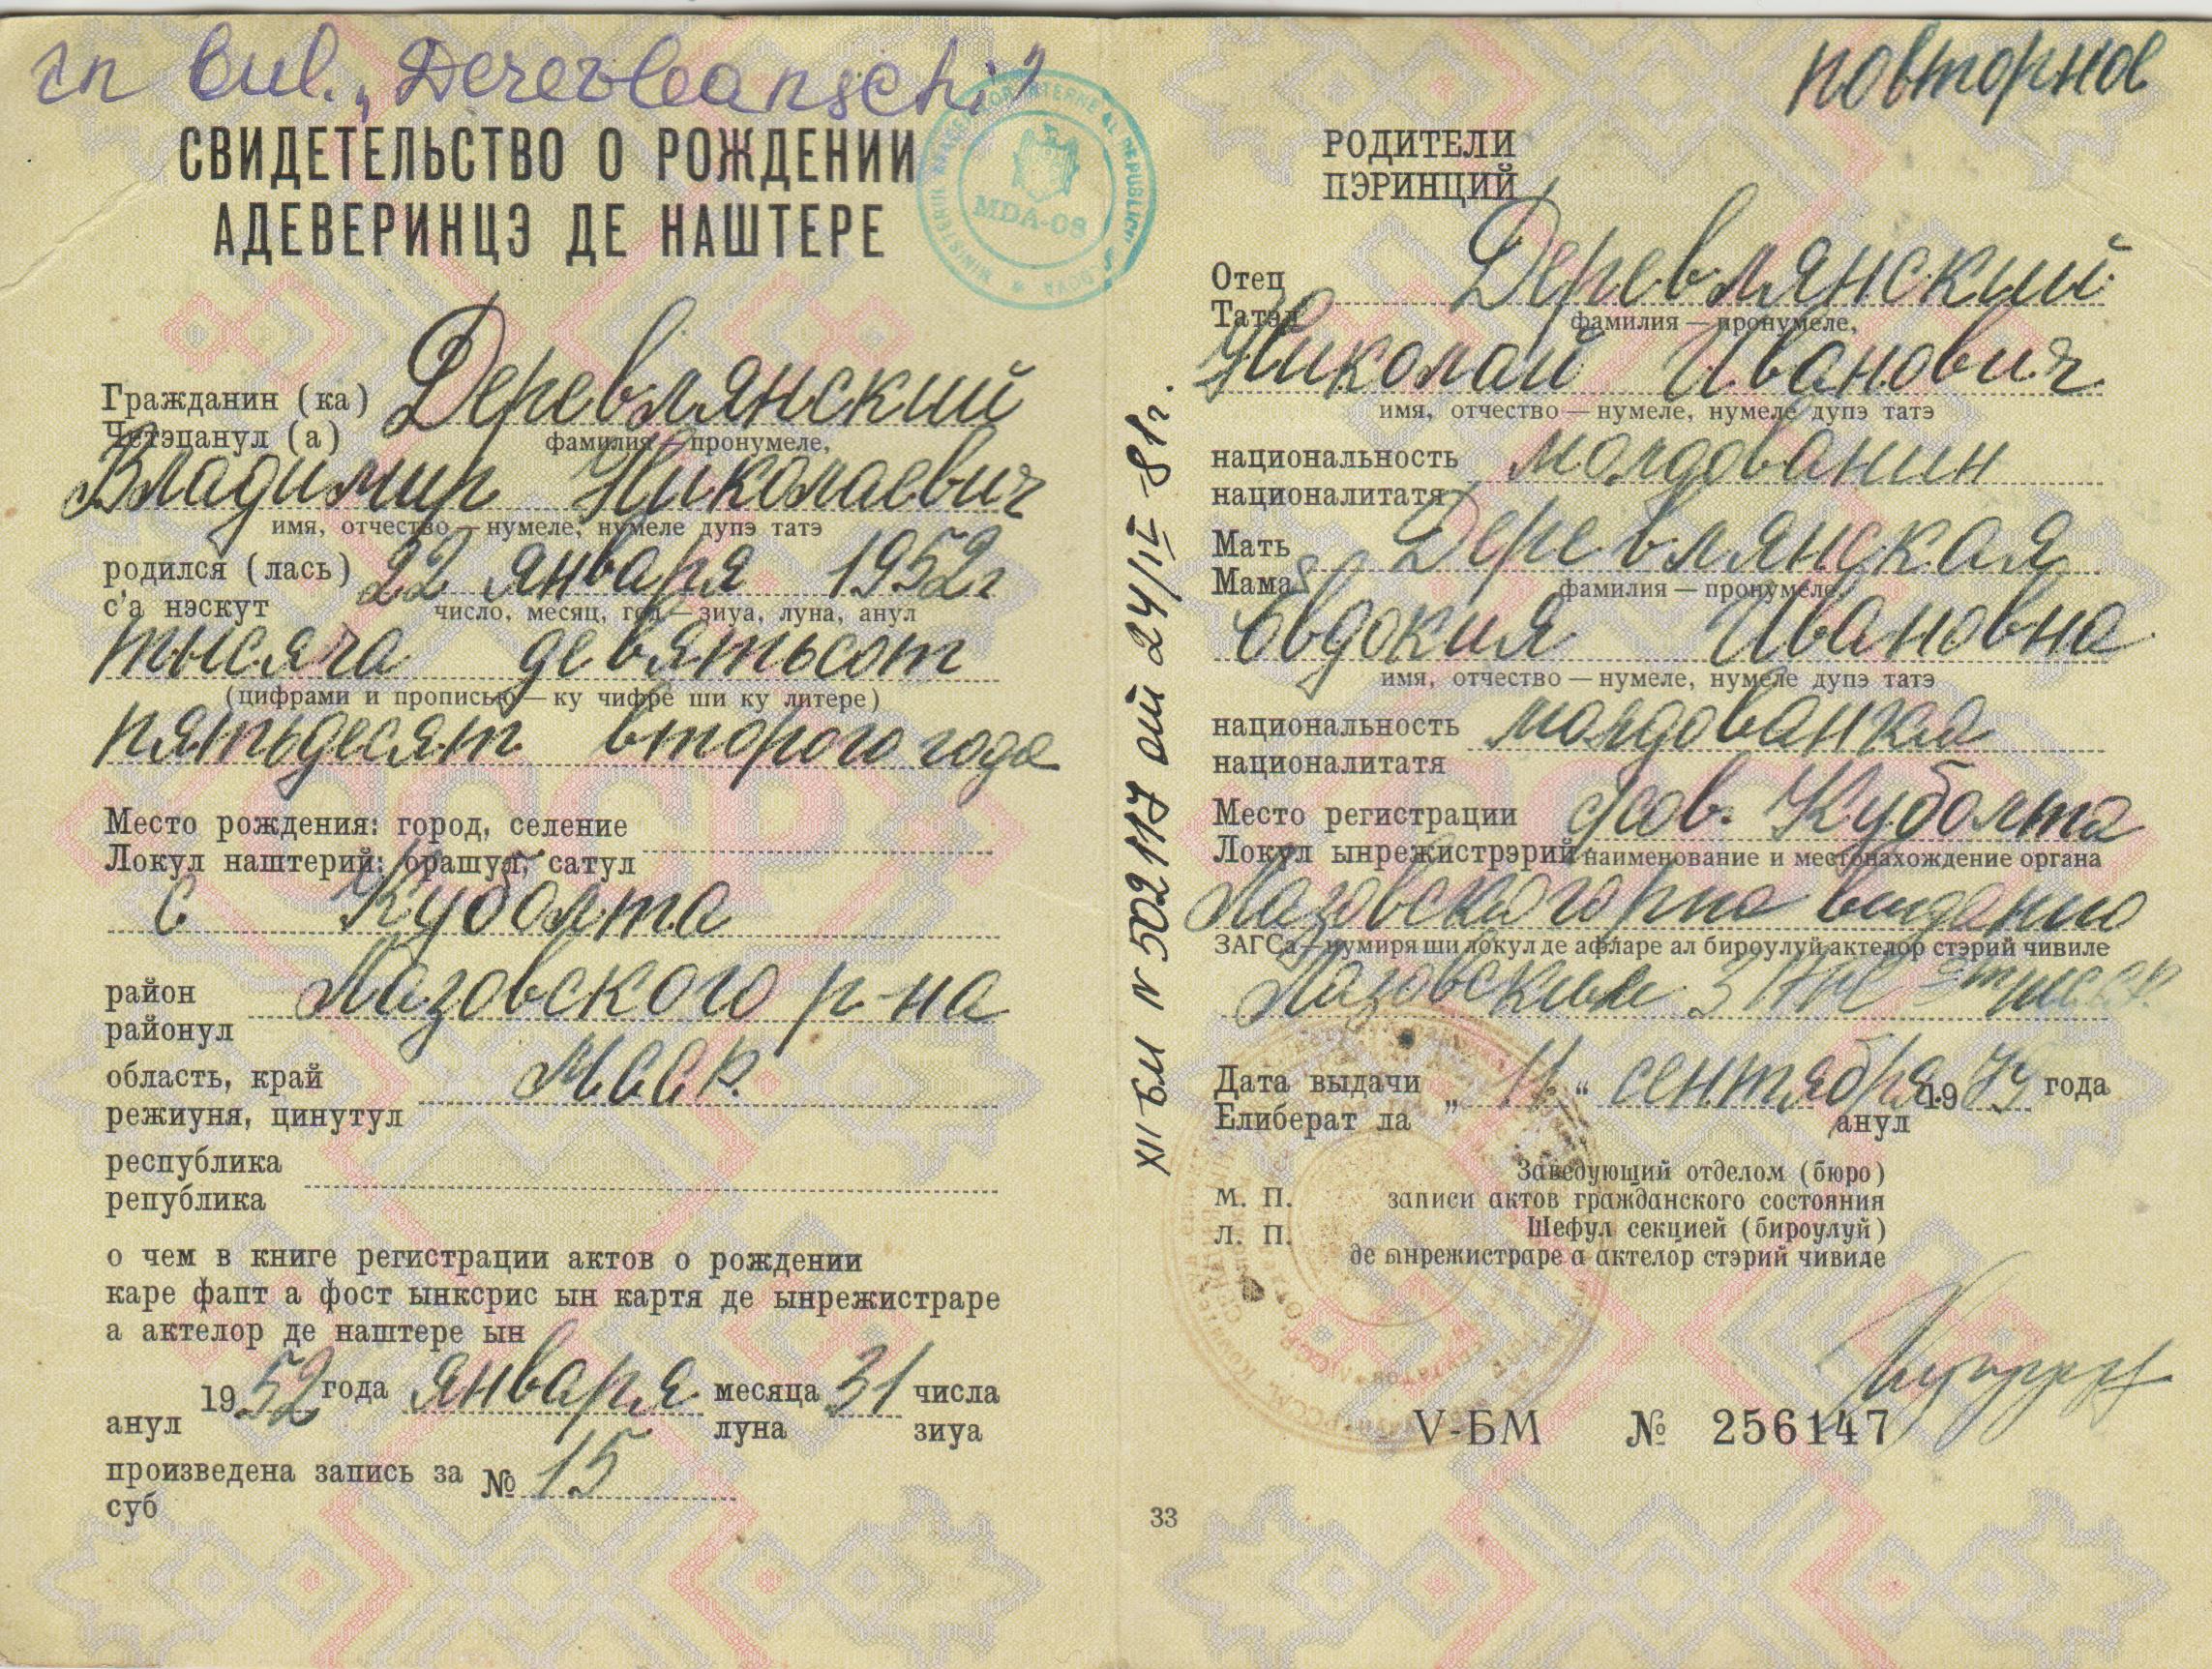 în bul. „Derevleanschi”
СВИДЕТЕЛЬСТВО О РОЖДЕНИИ
АДЕВЕРИНЦЭ ДЕ НАШТЕРЕ
MDA-08
Гражданин (ка) Деревлянский
Четэцанул (а)
фамилия — пронумеле,
Владимир Николаевич
имя, отчество — нумеле, нумеле дупэ татэ
родился (лась) 22 января 1952г
с'а нэскут
число, месяц, год — зиуа, луна, анул
тысяча девятьсот
(цифрами и прописью — ку чифре ши ку литере)
пятьдесят второго года
Место рождения: город, селение
Локул наштерий: орашул, сатул
с Куболта
район Лазовского р-на
районул
область, край МССР.
режиуня, цинутул
республика
република
о чем в книге регистрации актов о рождении
каре фапт а фост ынксрис ын картя де ынрежистраре
а актелор де наштере ын
1952 года января месяца 31 числа
анул луна зиуа
произведена запись за № 15
суб
XIII БМ № 502117 от 24/IX-81г.
повторное
РОДИТЕЛИ
ПЭРИНЦИЙ
Отец Деревлянский
Татэл
фамилия — пронумеле,
Николай Иванович
имя, отчество — нумеле, нумеле дупэ татэ
национальность молдованин
националитатя
Мать Деревлянская
Мама
фамилия — пронумеле,
Евдокия Ивановна
имя, отчество — нумеле, нумеле дупэ татэ
национальность молдованка
националитатя
Место регистрации с/сов. Куболта
Локул ынрежистрэрий наименование и местонахождение органа
Лазовского рна выдано
ЗАГСа — нумиря ши локул де афларе ал бироулуй актелор стэрий чивиле
Лазовским ЗАГС
Дата выдачи „11“ сентября 19 года
Елиберат ла анул
Заведующий отделом (бюро)
М. П. записи актов гражданского состояния
Шефул секцией (бироулуй)
Л. П. де ынрежистраре а актелор стэрий чивиле
V-БМ № 256147
33